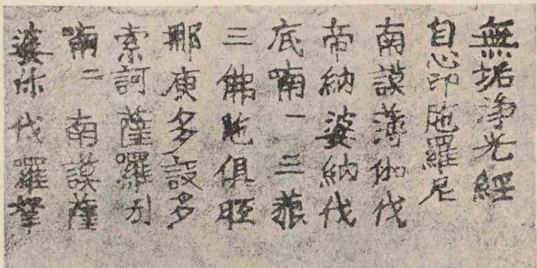 無垢淨光經
自心印陁羅尼
南謨薄伽伐
帝納婆納伐
底喃一三藐
三佛陁俱胝
那庾多設多
索訶薩羅引
喃二南謨薩
婆你伐羅拏